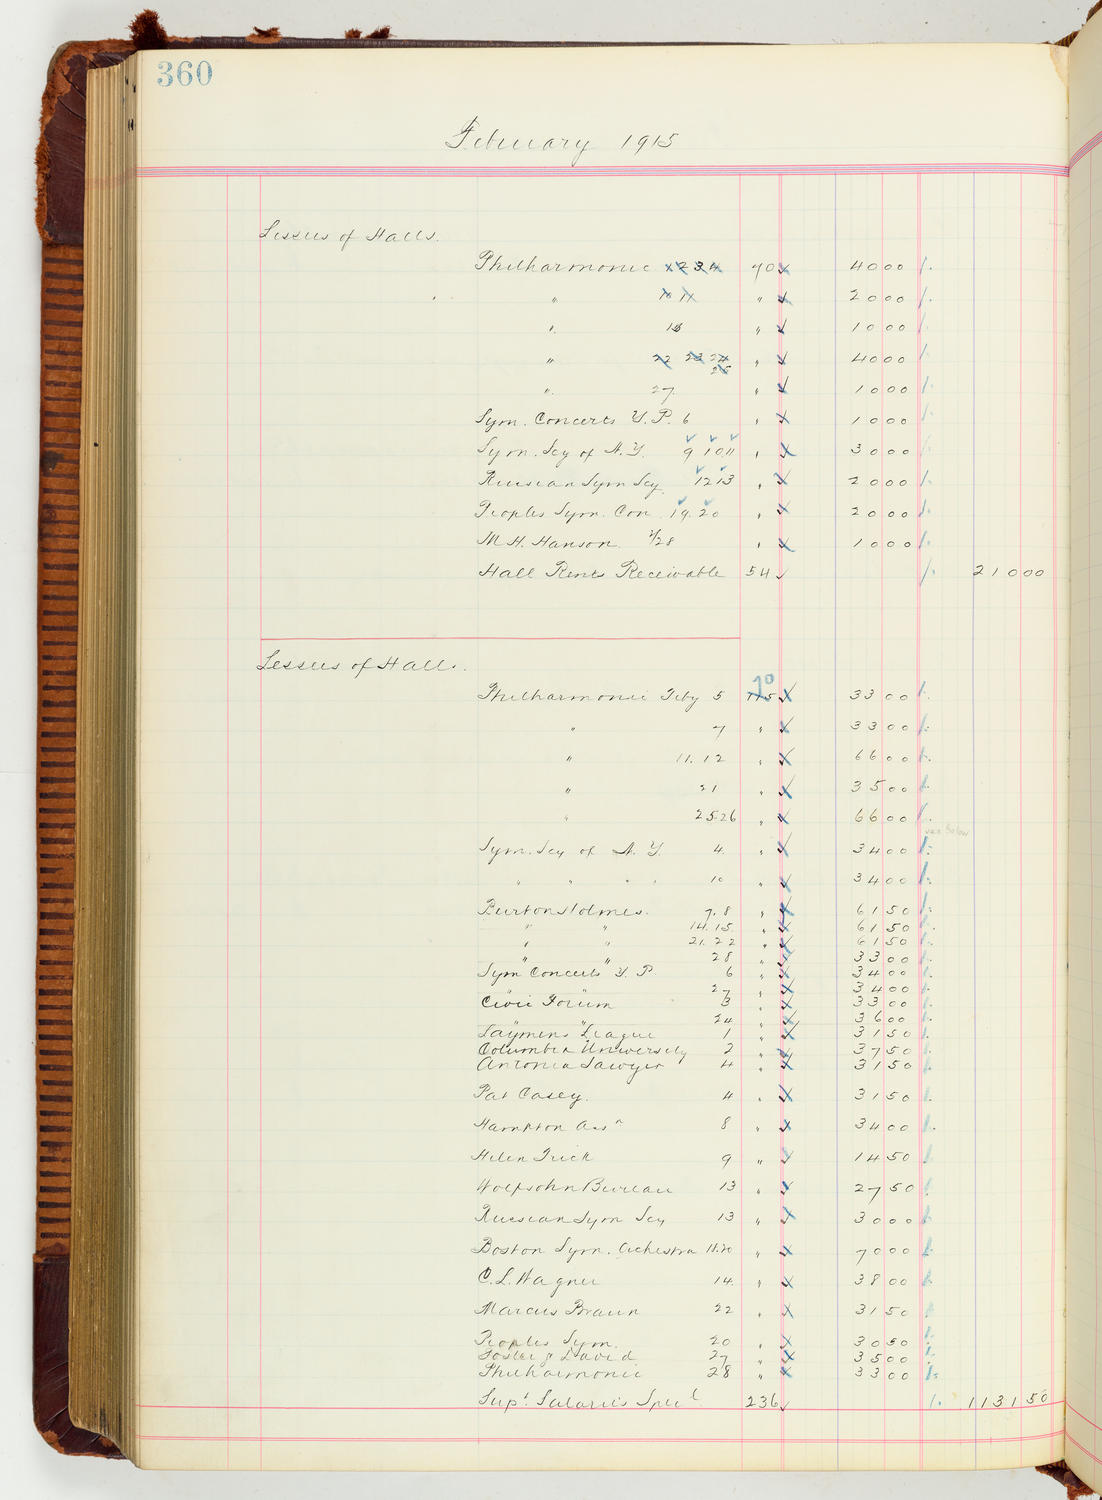 360
February 1915
Lessees of Halls.
Philharmonic 1 2 3 4 70 40 00
" 10 11 " 20 00
" " 10 00
" 22 23 24 25 " 40 00
" 27. " 10 00
Sym. Concerts Y. P. 6 " 10 00
Sym. Scy of N. Y. 9 10 11 " 30 00
Russian Sym Scy. 12 13 " 20 00
Peoples Sym. Con. 19. 20 " 20 00
M H. Hanson. 2/28 " 10 00
Hall Rents Receivable 54 210 00
Lessees of Halls.
Philharmonic Feby 5 70 33 00
" 7 " 33 00
" 11. 12 " 66 00
" 21 " 35 00
" 25 26 " 66 00
see below
Sym. Scy of N. Y. 4. " 34 00
" " " " 10 " 34 00
Burton Holmes. 7. 8 " 61 50
" " 14. 15. " 61 50
" " 21. 22 " 61 50
" " 28 " 33 00
Sym Concerts Y. P 6 " 34 00
" " 27 " 34 00
Civic Forum 3 " 33 00
" " 24 " 36 00
Laymens League 1 " 31 50
Columbia University 2 " 37 50
Antonia Sawyer 4 " 31 50
Pat Casey. 4 " 31 50
Hampton Assn 8 " 34 00
Helen Frick 9 " 14 50
Wolfsohn Bureau 13 " 27 50
Russian Sym Scy 13 " 30 00
Boston Sym. Orchestra " 70 00
C. L. Wagner 14. " 38 00
Marcus Braun 22 " 31 50
Peoples Sym. 20 " 30 50
Foster & David 27 " 35 00
Philharmonic 28 " 33 00
Supt. Salaries Specl 236 1131 50